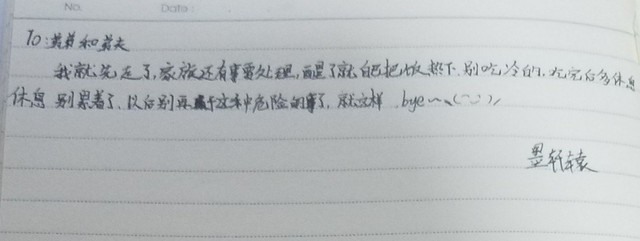 No.    Date:
To:弟弟和弟夫
我就先走了,家族还有事要处理,醒了就自己把饭热下.别吃冷的.吃完后多休息
休息 别累着了、以后别再干这种危险的事了,就这样.bye~~(⌣⌣)/
墨轩辕